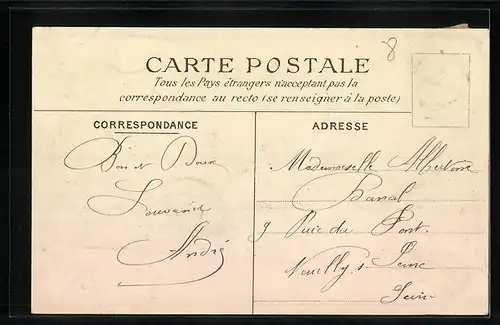 8
CARTE POSTALE
Tous les Pays étrangers n'acceptant pas la
correspondance au recto (se renseigner à la poste)
CORRESPONDANCE
Bon et Doux
Souvenir
André
ADRESSE
Mademoiselle Albertine
9 Rue du Pont.
Neuilly s Seine
Seine